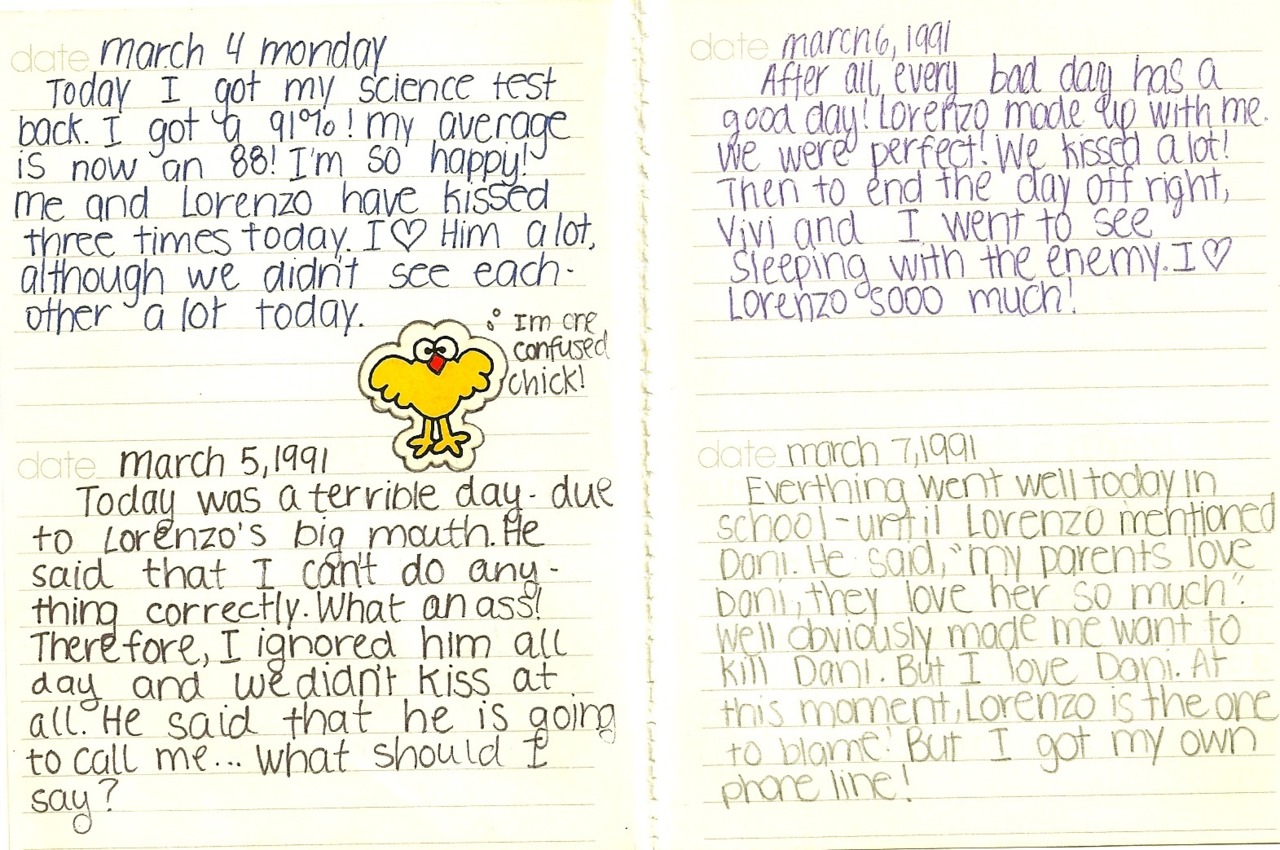 date march 4 monday
Today I got my science test
back. I got a 91%! my average
is now an 88! I'm so happy!
me and Lorenzo have kissed
three times today. I ♡ Him a lot,
although we didn't see each-
other a lot today.
Im one
confused
chick!
date march 5, 1991
Today was a terrible day - due
to Lorenzo's big mouth. He
said that I can't do any-
thing correctly. What an ass!
Therefore, I ignored him all
day and we didn't kiss at
all. He said that he is going
to call me... What should I
say?
date march 6, 1991
After all, every bad day has a
good day! Lorenzo made up with me.
We were perfect! We kissed a lot!
Then to end the day off right,
Vivi and I went to see
Sleeping with the enemy. I ♡
Lorenzo sooo much!
date march 7, 1991
Everthing went well today in
school - until Lorenzo mentioned
Dani. He said, "my parents love
Dani, they love her so much".
Well obviously made me want to
kill Dani. But I love Dani. At
this moment, Lorenzo is the one
to blame! But I got my own
phone line!